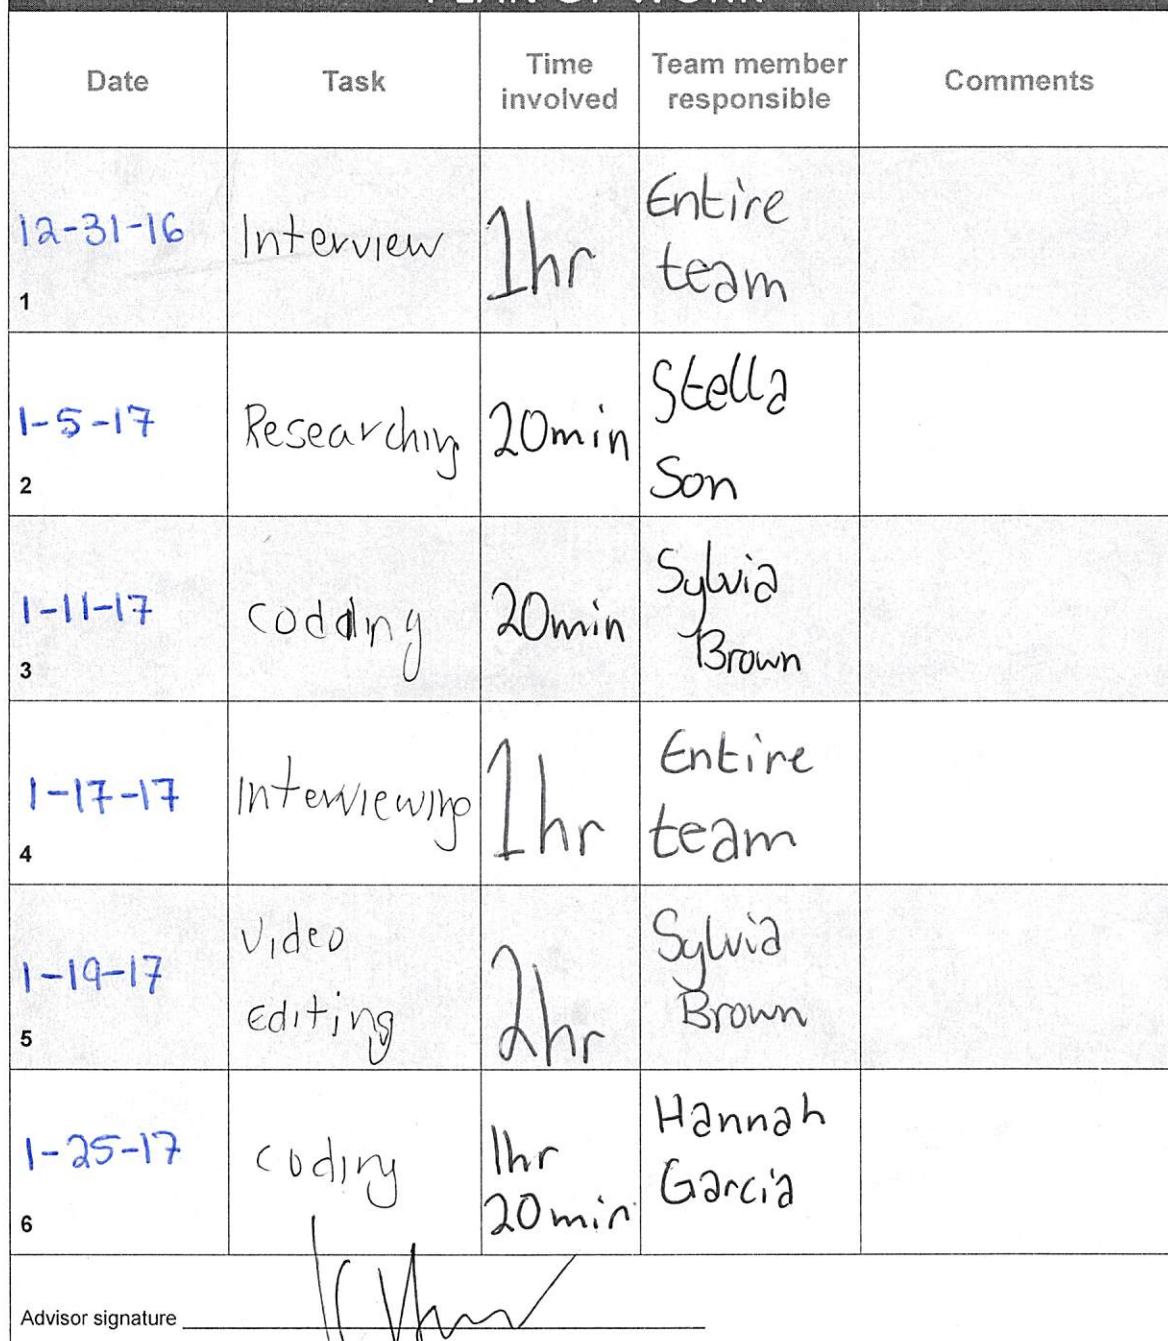 PLAN OF WORK
Date Task Time involved Team member responsible Comments
12-31-16 Interview 1hr Entire team
1
1-5-17 Researching 20min Stella Son
2
1-11-17 codding 20min Sylvia Brown
3
1-17-17 Interviewing 1hr Entire team
4
1-19-17 video editing 2hr Sylvia Brown
5
1-25-17 coding 1hr 20min Hannah Garcia
6
Advisor signature